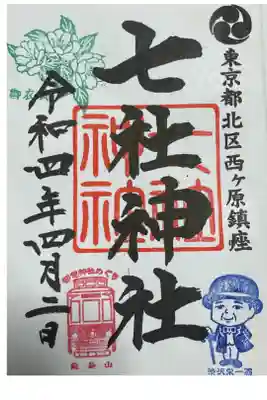 東京都北区西ヶ原鎮座
七社神社
令和四年四月二日
御衣
飛鳥山
渋沢栄一翁